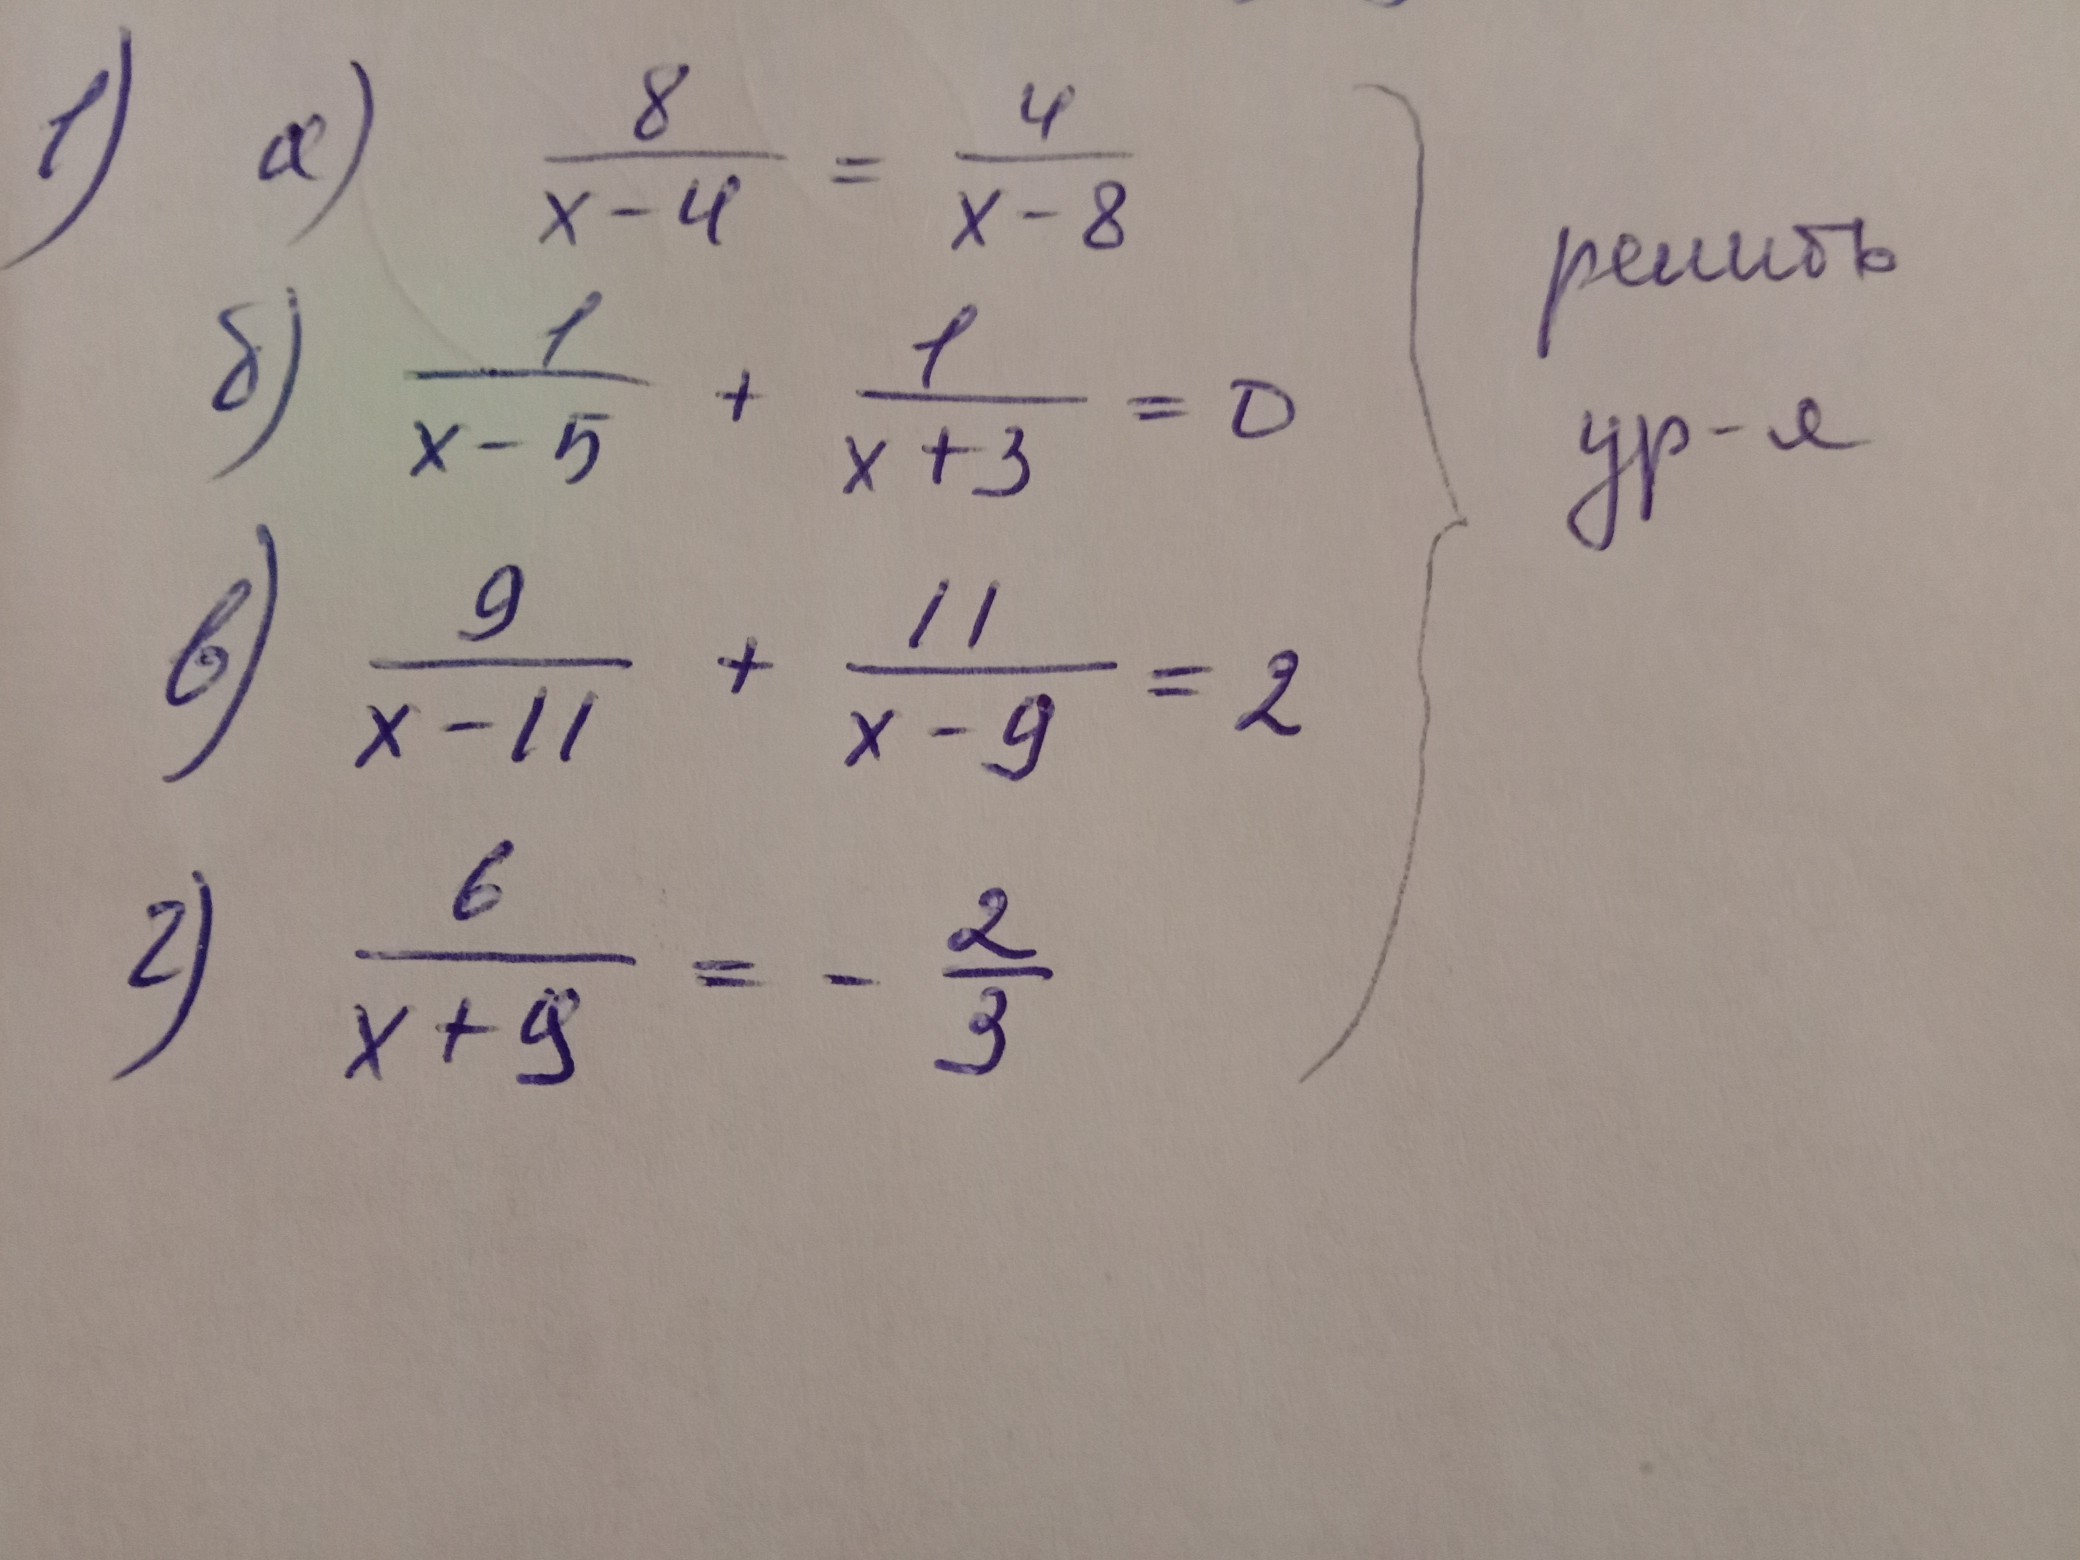 1) а) 8/(x-4) = 4/(x-8)
б) 1/(x-5) + 1/(x+3) = 0
в) 9/(x-11) + 11/(x-9) = 2
г) 6/(x+9) = - 2/3
решить
ур-я